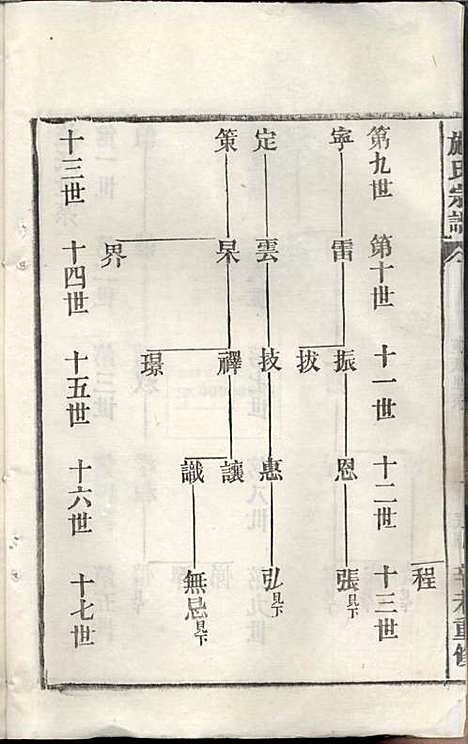 施氏宗譜
辛未重修
程
第九世 第十世 十一世 十二世 十三世
寧 雷 振 恩 張見下
拔
定 雲 技 惠 弘見下
策 杲 禪 讓
璟 識 無忌見下
界
十三世 十四世 十五世 十六世 十七世